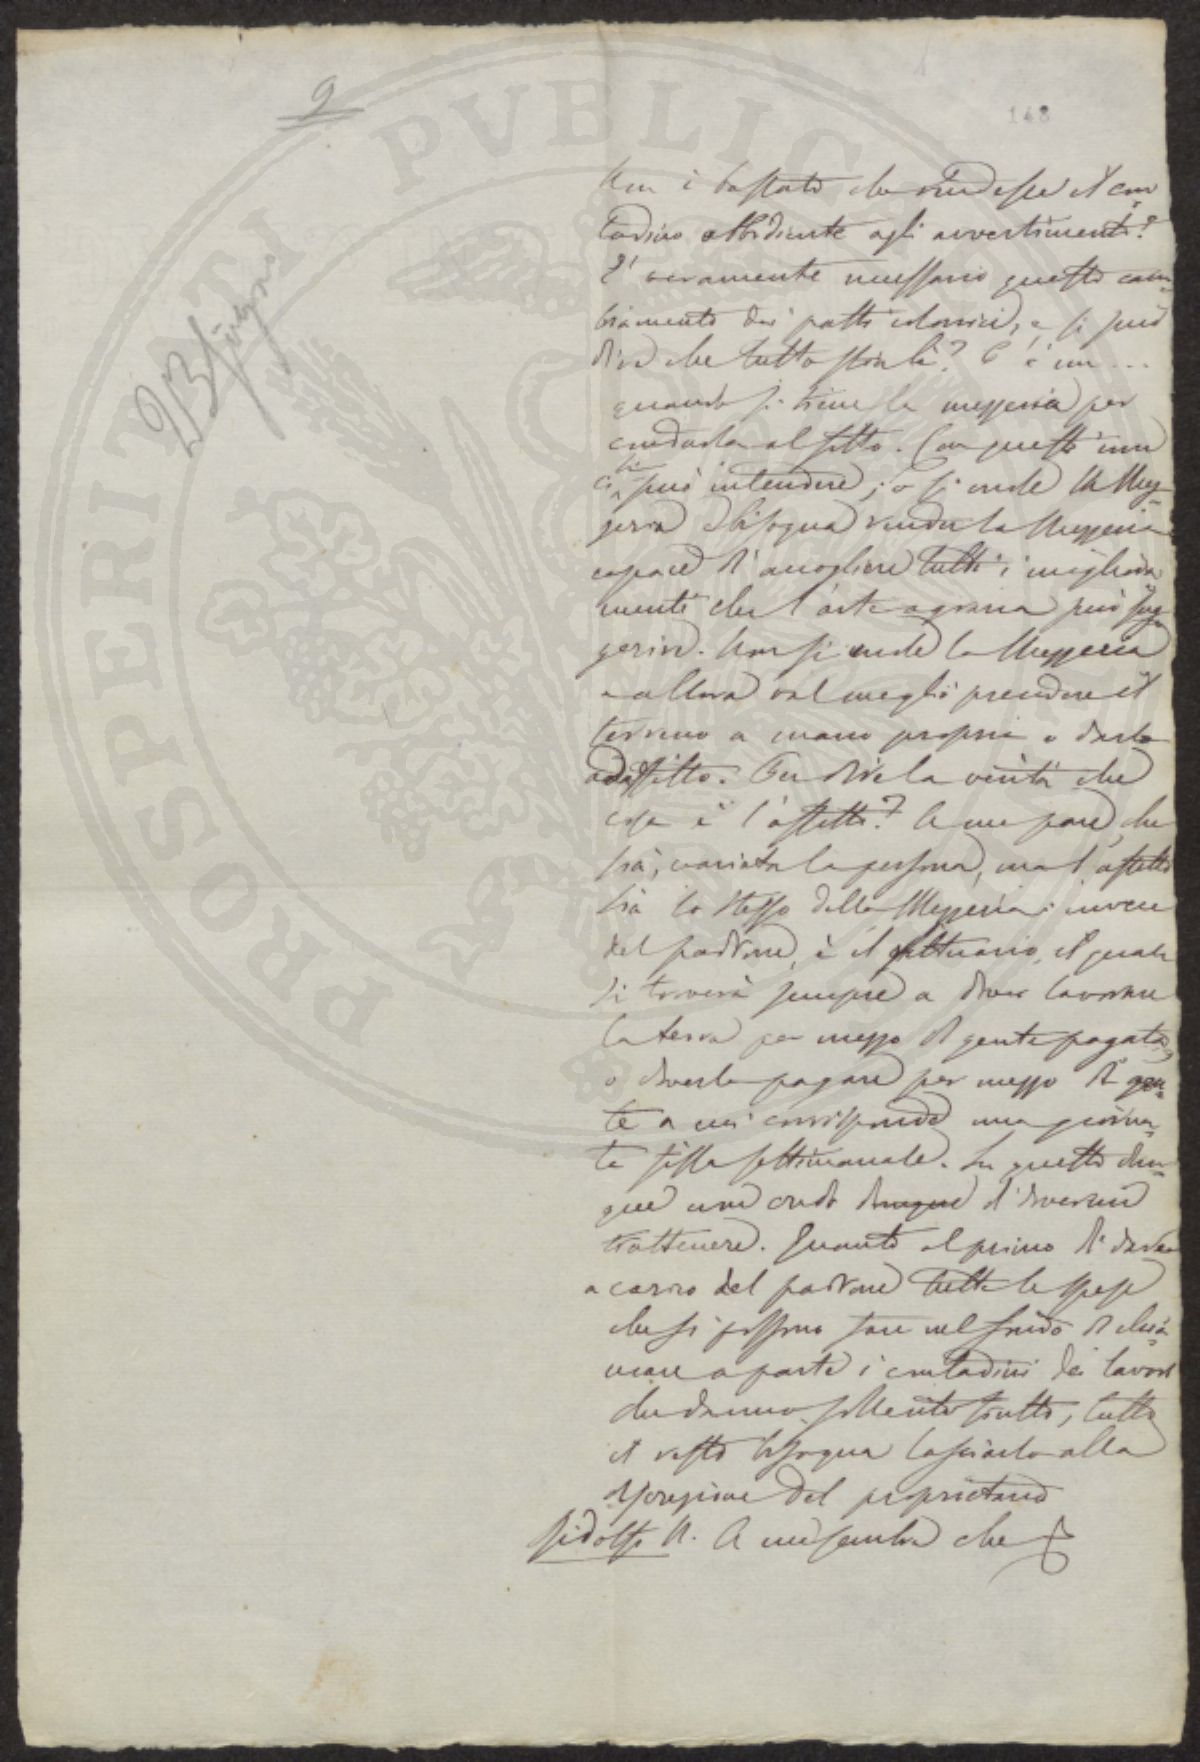 9
148
23 giugno
Non è bastato che rendesse il con
tadino obbidiente agli avvertimenti?
E' veramente necessario questo cam=
biamento dei patti colonici, e si può
dire che tutto stia lì? C'è un ...
quando si tiene la mezzeria per
condurla al fitto. Con questi non
ci si può intendere; o si crede la Mez=
zeria e bisogna render la Mezzeria
capace d'accogliere tutti i migliora
menti che l'arte agraria può sug=
gerire. Non si crede la Mezzeria
e allora val meglio prendere il
terreno a mano propria o darlo
ad affitto. Per dire la verità che
cosa è l'affitto? A me pare che
sia, variata la persona, ma l'affetto
sia lo stesso della Mezzeria: invece
del padrone, è il fittuario, il quale
si troverà sempre a dover lavorare
la terra per mezzo di gente pagata,
o doverla pagare per mezzo di gen=
te a cui corrisponde una giorna=
ta fissa settimanale. In questo dun=
que non credo dunque di dovermi
trattenere. Quanto al primo di dare
a carico del padrone tutte le spese
che si possono fare nel fondo di
a parte i contadini dei lavori
che danno sollecito frutto, tutto
il resto bisogna lasciarlo alla
discrezione del proprietario
Ridolfi N. A me sembra che